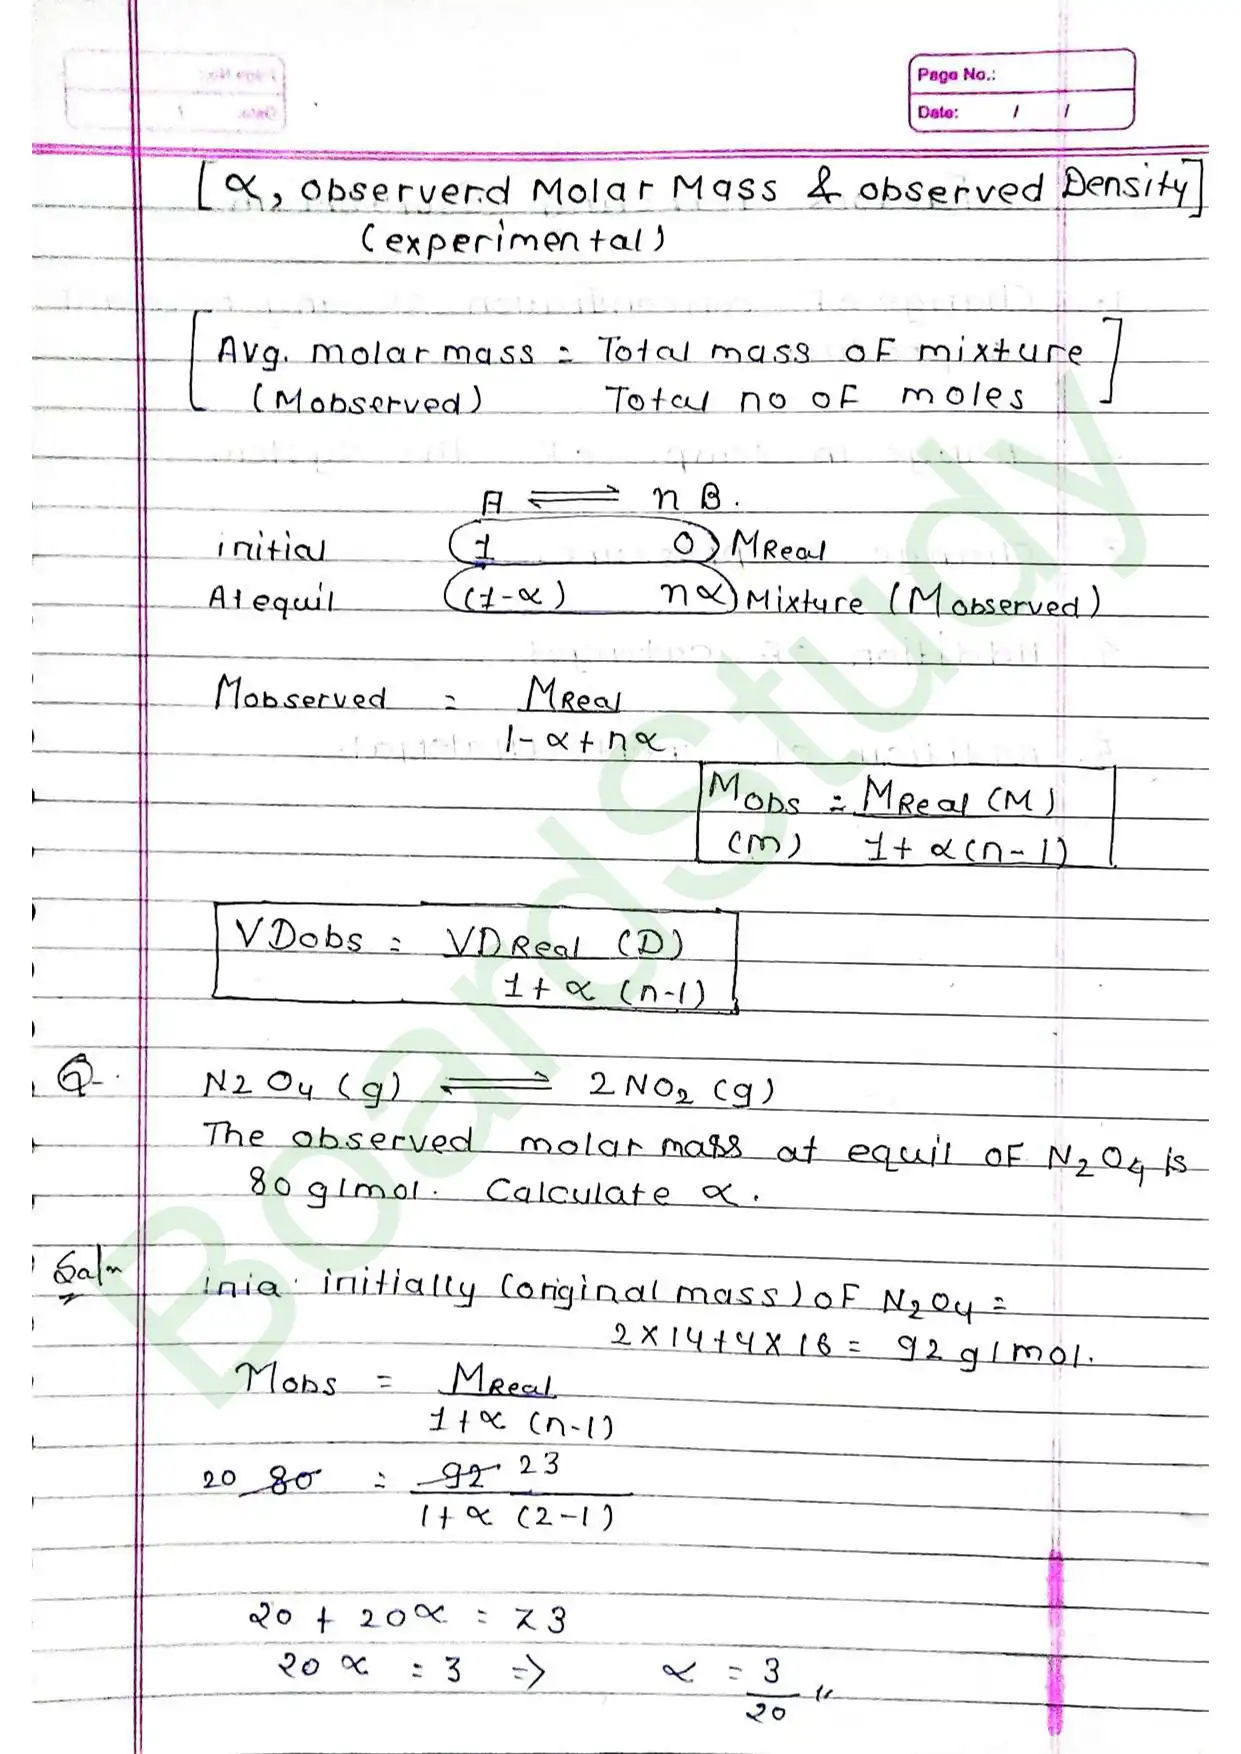 Page No.:
Date: / /
[α, observerd Molar Mass & observed Density]
(experimental)
[Avg. molar mass = Total mass of mixture
(Mobserved) Total no of moles]
A ⇌ nB.
initial 1 0 MReal
At equil (1-α) nα Mixture (Mobserved)
Mobserved = MReal
1-α+nα
Mobs = MReal (M)
(m) 1+α(n-1)
VDobs = VDReal (D)
1+α (n-1)
Q. N2O4 (g) ⇌ 2NO2 (g)
The observed molar mass at equil of N2O4 is
80 g/mol. Calculate α.
Soln inia. initially (original mass) of N2O4 =
2×14+4×16 = 92 g/mol.
Mobs = MReal
1+α (n-1)
20 80 = 92 23
1+α (2-1)
20 + 20α = 23
20α = 3 ⇒ α = 3
20 "
BoardStudy